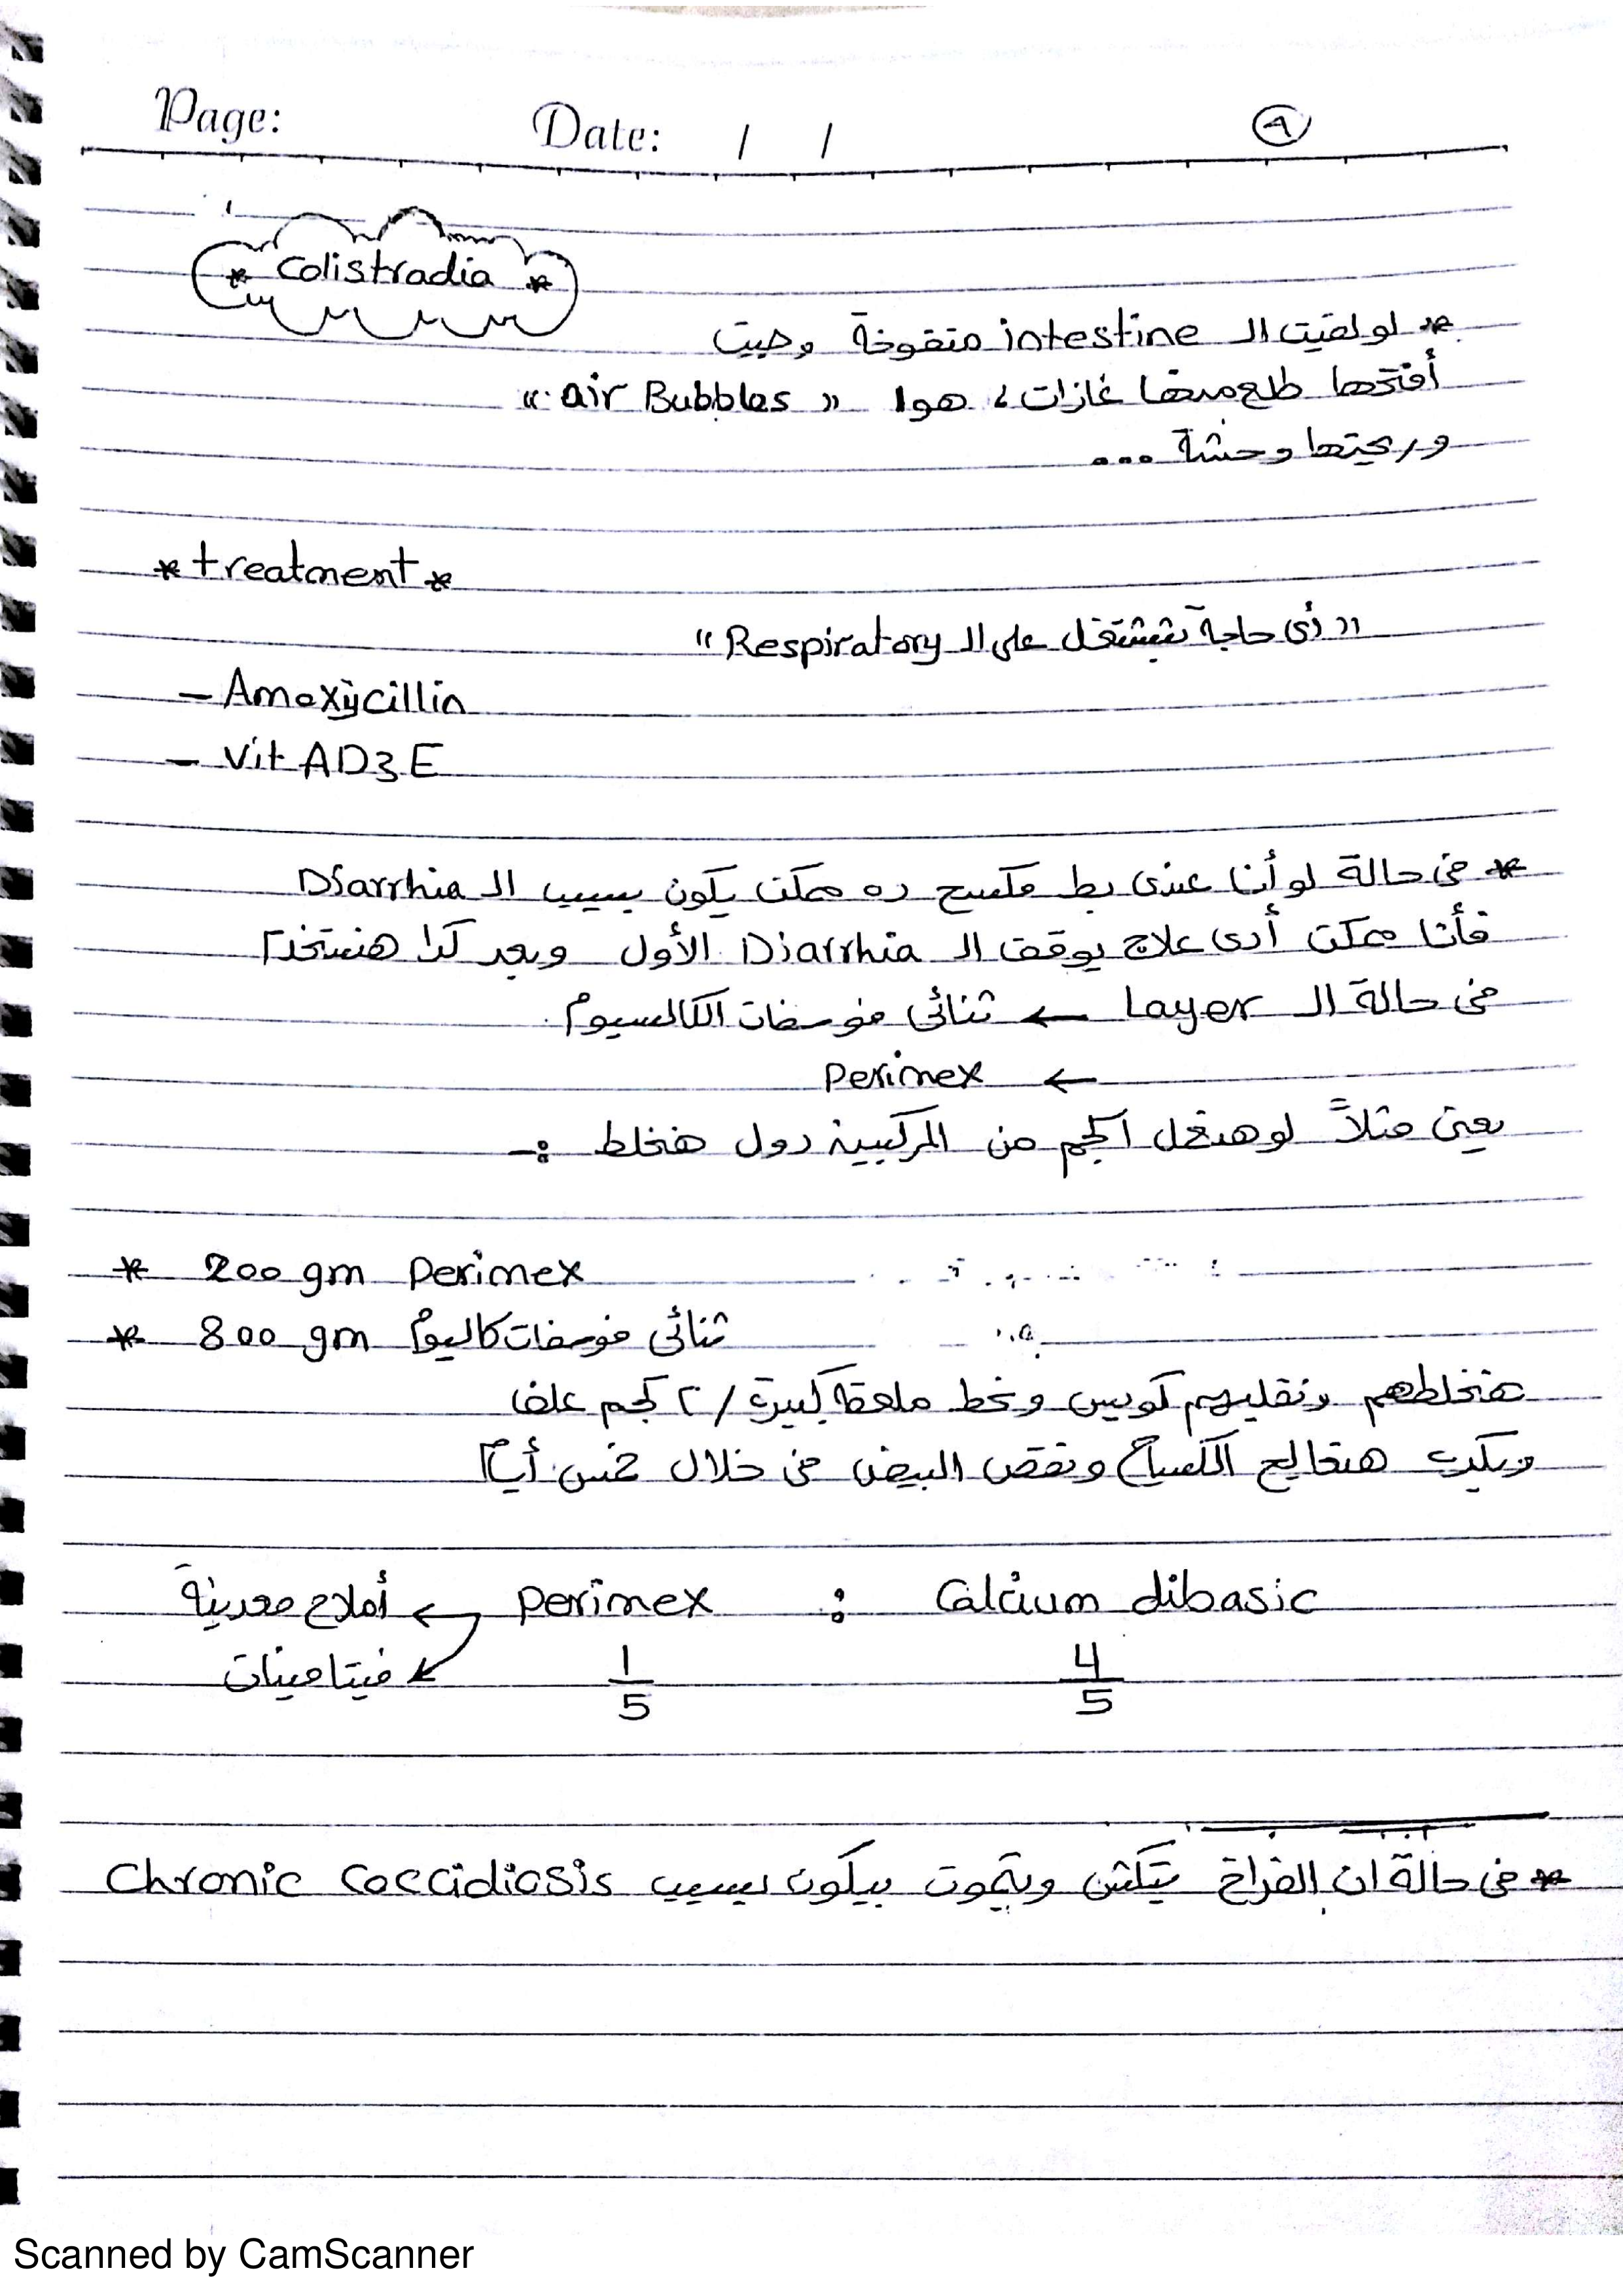 Page: Date: / / ٩
* Colistradia *
* لو لقيت الـ intestine منفوخة وجيت
أفتحها طلع منها غازات، هوا « air Bubbles »
وريحتها وحشة ...
* treatment *
" أى حاجة بتشتغل على الـ Respiratory "
- Amoxycillin
- Vit AD3E
* فى حالة لو أنا عندى بط مكسح ده ممكن يكون بسبب الـ Diarrhia
فأنا ممكن أدى علاج يوقف الـ Diarrhia الأول وبعد كدا هنستخدم
فى حالة الـ Layer ← ثنائى فوسفات الكالسيوم
← Perimex
يعنى مثلاً لو هنعمل 1 كجم من التركيبة دول هنخلط :-
* 200 gm Perimex
* 800 gm ثنائى فوسفات كاليوم
هنخلطهم ونقلبهم كويس ونحط ملعقة كبيرة / ٢ كجم علف
وبكدب هنعالج الكساح ونقص البيض فى خلال خمس أيام
أملاح معدنية ← Perimex : Calcium dibasic
فيتامينات 1/5 4/5
* فى حالة ان الفراخ بتكتش وبتموت بيكون بسبب Chronic Coccidiosis
Scanned by CamScanner